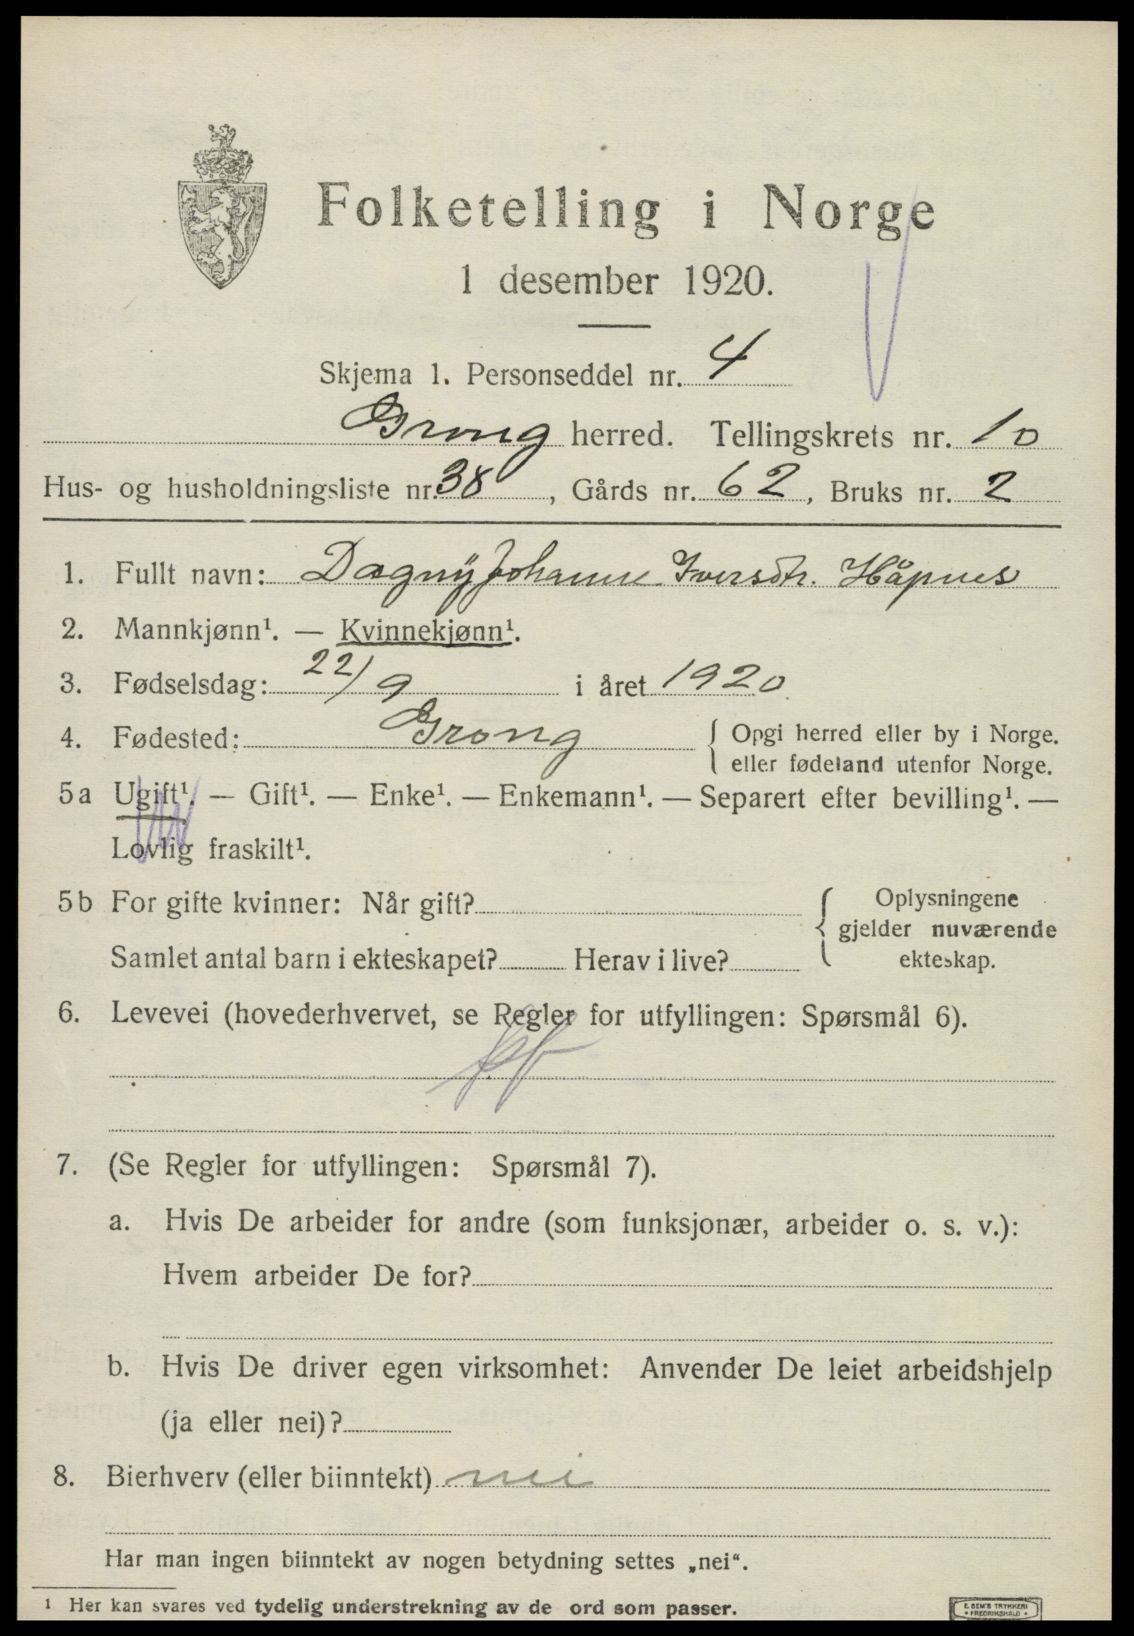 Folketelling i Norge
1 desember 1920.
Skjema 1. Personseddel nr. 4
Grong herred. Tellingskrets nr. 10
Hus- og husholdningsliste nr. 38, Gårds nr. 62, Bruks nr. 2
1. Fullt navn: Dagny Johanne Iversdtr. Håpnes
2. Mannkjønn¹. — Kvinnekjønn¹.
3. Fødselsdag: 22/9 i året 1920
4. Fødested: Grong { Opgi herred eller by i Norge.
eller fødeland utenfor Norge.
5a Ugift¹. — Gift¹. — Enke¹. — Enkemann¹. — Separert efter bevilling¹. —
Lovlig fraskilt¹.
5b For gifte kvinner: Når gift? { Oplysningene
gjelder nuværende
Samlet antal barn i ekteskapet? Herav i live? ekteskap.
6. Levevei (hovederhvervet, se Regler for utfyllingen: Spørsmål 6).
7. (Se Regler for utfyllingen: Spørsmål 7).
a. Hvis De arbeider for andre (som funksjonær, arbeider o. s. v.):
Hvem arbeider De for?
b. Hvis De driver egen virksomhet: Anvender De leiet arbeidshjelp
(ja eller nei)?
8. Bierhverv (eller biinntekt) nei
Har man ingen biinntekt av nogen betydning settes „nei“.
1 Her kan svares ved tydelig understrekning av de ord som passer.
E. SEM'S TRYKKERI
• FREDRIKSHALD •